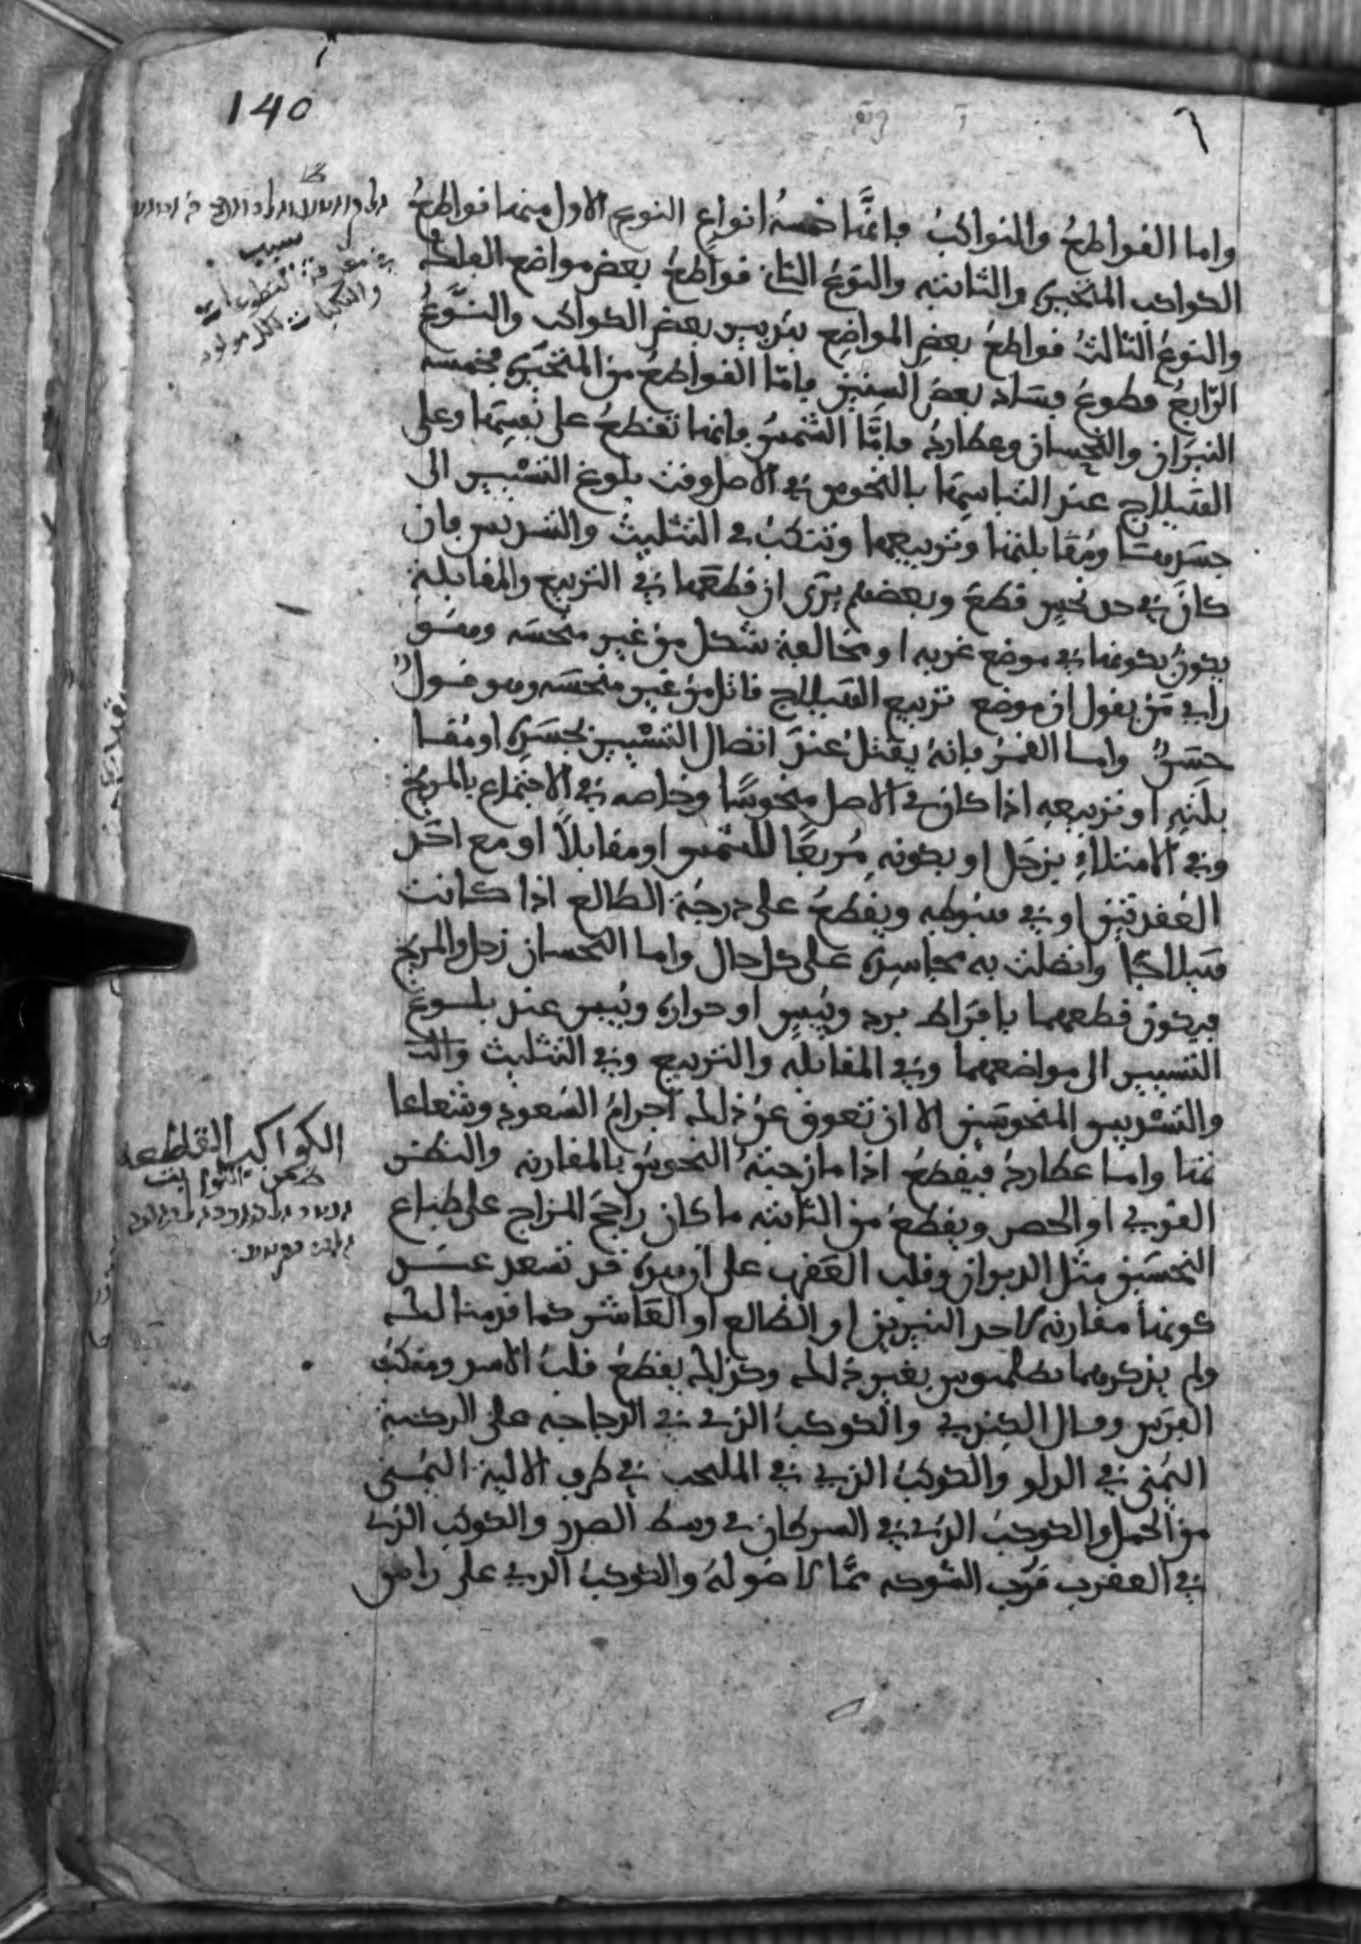 140
واما القواطع والنواكب فانها خمسة انواع النوع الاول منها قواطع
الكواكب المتحيرة والثابتة والنوع الثاني قواطع بعض مواضع الفلك
والنوع الثالث قواطع بعض المواضع بتربيس بعض الكواكب والنوع
الرابع قطوع فساد بعض السنين فاما القواطع من المتحيرة فخمسة
النيران والنحسان وعطارد فاما الشمس فانها تقطع على نفسها وعلى
الهيلاج عند التباسها بالنحوس في الاصل وقت بلوغ التسيير الى
جسدها ومقابلتها وتربيعها وتنكب في التثليث والتسديس فان
كان في حد نحس قطع وبعضهم يرى ان قطعها في التربيع والمقابلة
يكون بكونها في موضع غربة او مخالفة شكل من غير منحسة وهو
راي من يقول ان موضع تربيع الهيلاج قاتل من غير منحسة وهو قول
حسن واما القمر فانه يقتل عند اتصال التسيير بجسده او مقا
بلته او تربيعه اذا كان في الاصل منحوسا وخاصة في الاجتماع بالمريخ
وفي الامتلاء بزحل او بكونه مربعا للشمس او مقابلا او مع احد
العقدتين او في هبوطه ويقطع على درجة الطالع اذا كانت
هيلاجا واتصلت به مجاسدة على كل حال واما النحسان زحل والمريخ
فيكون قطعهما بافراط برد ويبس او حرارة ويبس عند بلوغ
التسيير الى مواضعهما وفي المقابلة والتربيع وفي التثليث
والتسديس المنحوسين الا ان تعوق عن ذلك اجرام السعود وشعاعا
تها واما عطارد فيقطع اذا مازجته النحوس بالمقارنة والنظر
القوي او الحصر ويقطع من الثابتة ما كان راجح المزاج على طباع
النحسين مثل الدبران وقلب العقرب على ان هذه قد تسعد عند
كونها مقارنة لاحد النيرين او الطالع او العاشر كما قدمنا لك
ولم يذكرهما بطلميوس بغير ذلك وكذلك يقطع قلب الاسد ومنكب
الفرس وقال الكندي والكوكب الذي في الدجاجة على الركبة
اليمنى في الدلو والكوكب الذي في الملتهب في طرف الالية اليمنى
من الحمل والكوكب الذي في السرطان في وسط الصدر والكوكب الذي
في العقرب قرب الشوكة مما لا ضو له والكوكب الذي على راس
في معرفة القطوعات
والنكبات لكل مولود
الكواكب القاطعة
من الثوابت